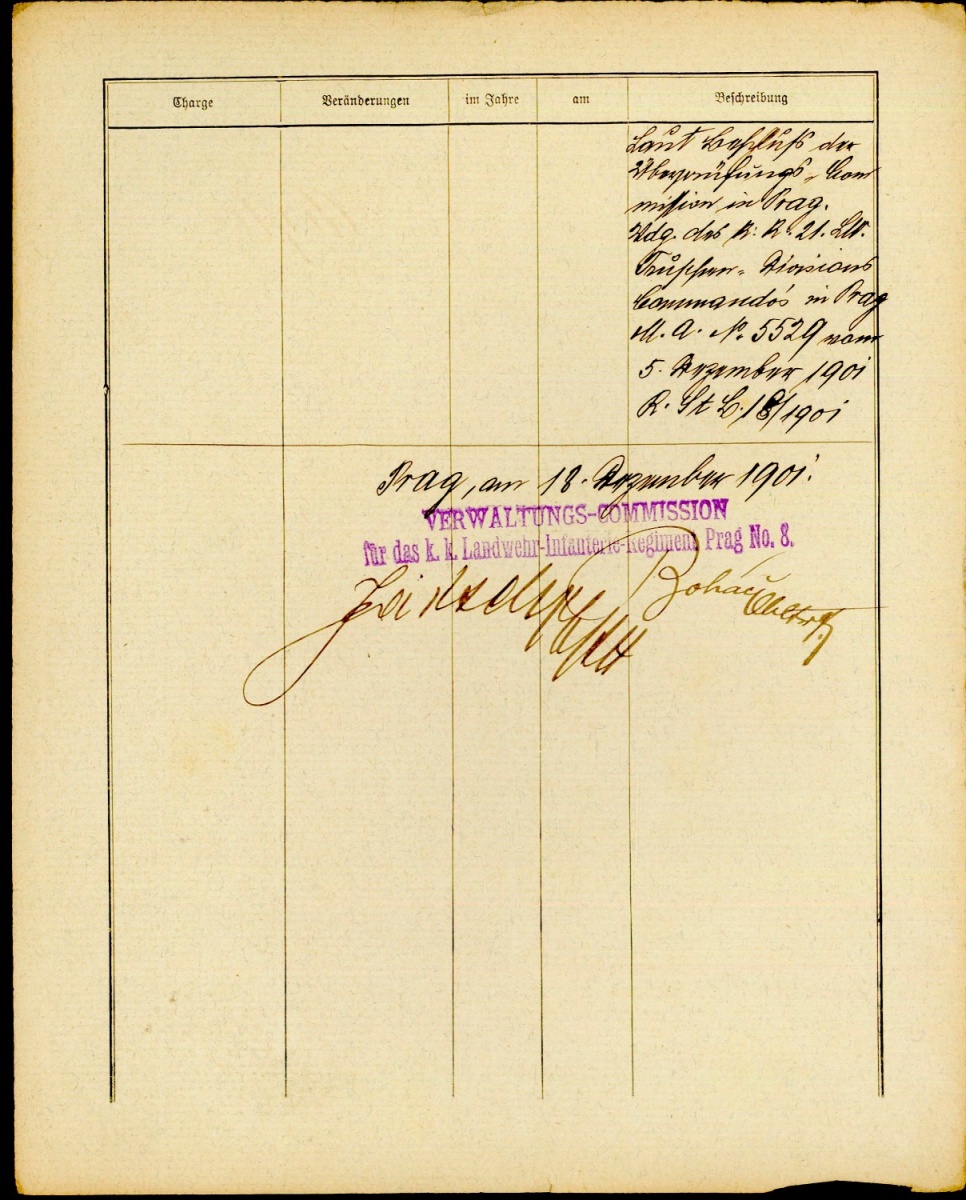 Charge Veränderungen im Jahre am Beschreibung
Laut Beschluß der
Überprüfungs-Com
mission in Prag.
Vdg. des k. k. 21. LW.
Truppen-Divisions
Commando's in Prag
M. A. No. 5529 vom
5. Dezember 1901
R. St L. 18/1901
Prag, am 18. Dezember 1901.
VERWALTUNGS-COMMISSION
für das k. k. Landwehr-Infanterie-Regiment Prag No. 8.